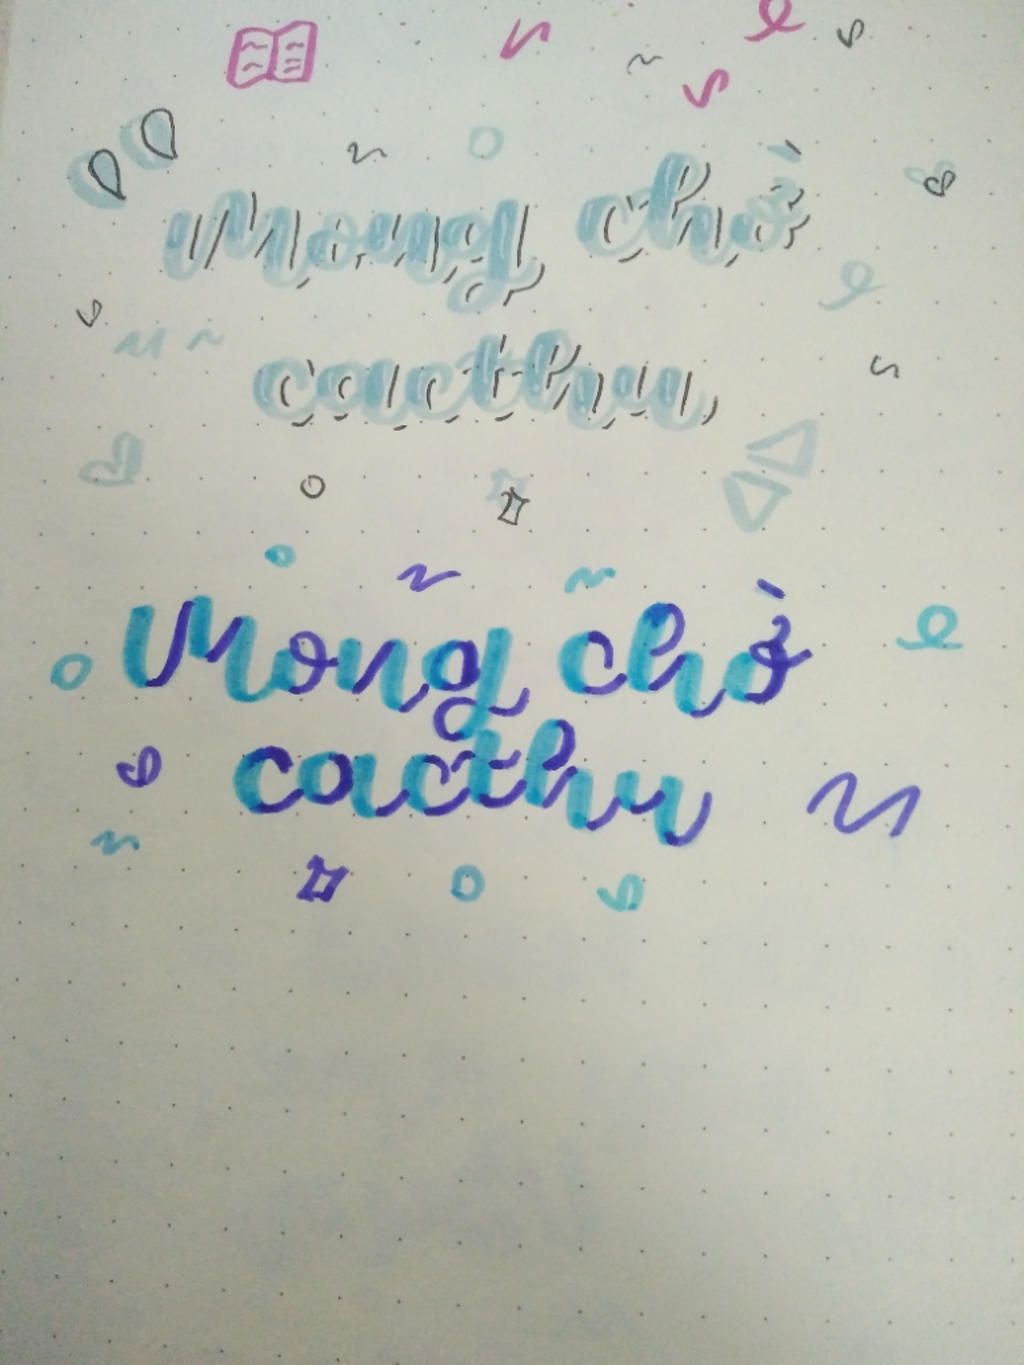 Mong chờ
cacthu
Mong chờ
cacthu